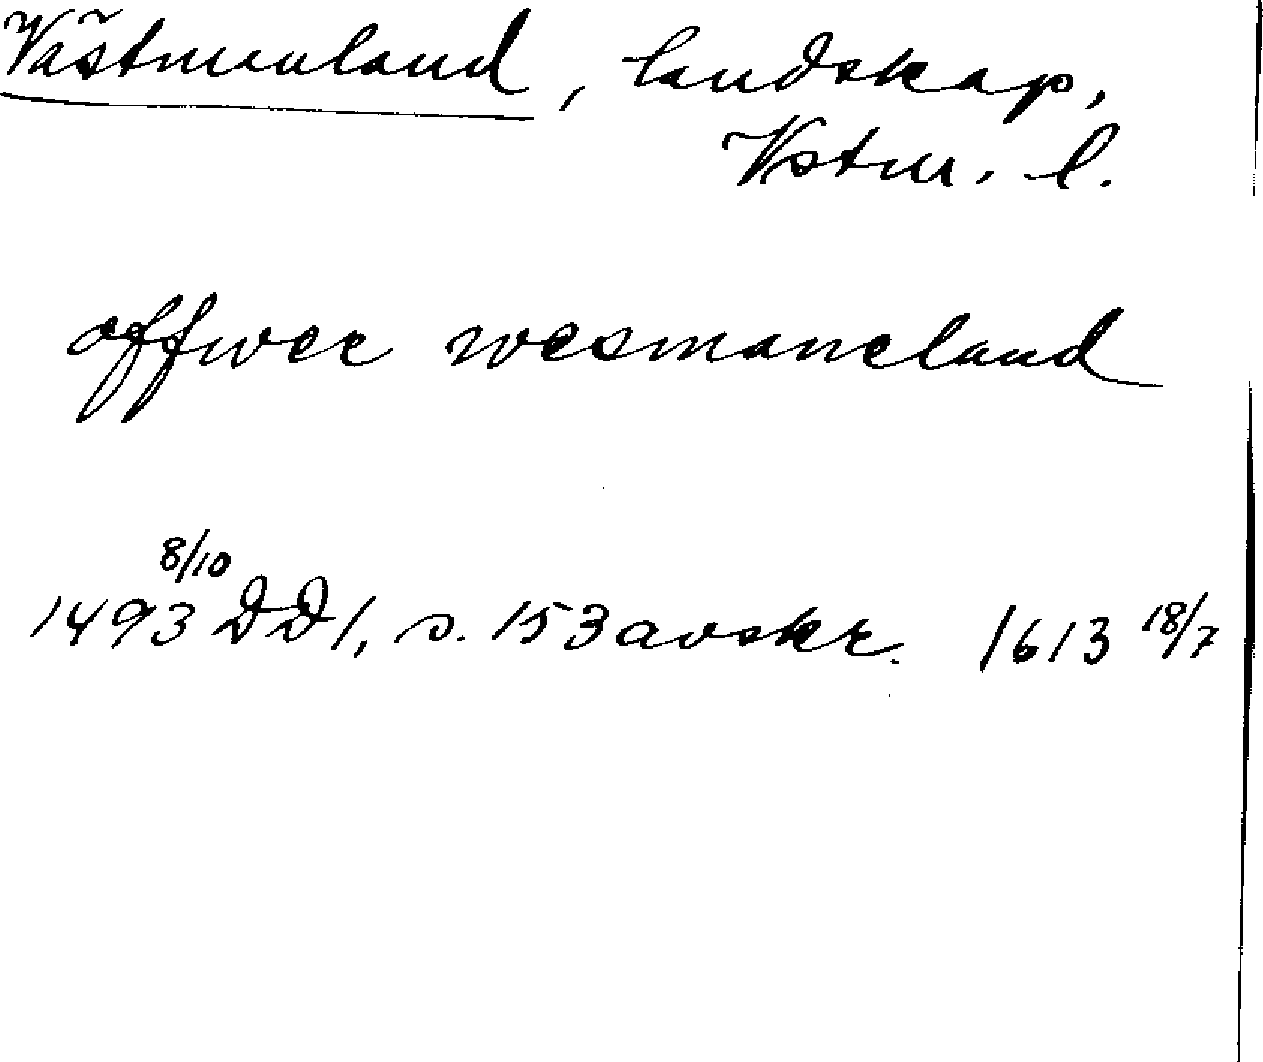 Västmanland, landskap,
Vstm. l.
offwer wesmaneland
8/10
1493 DD1, s. 153 avskr. 1613 18/7